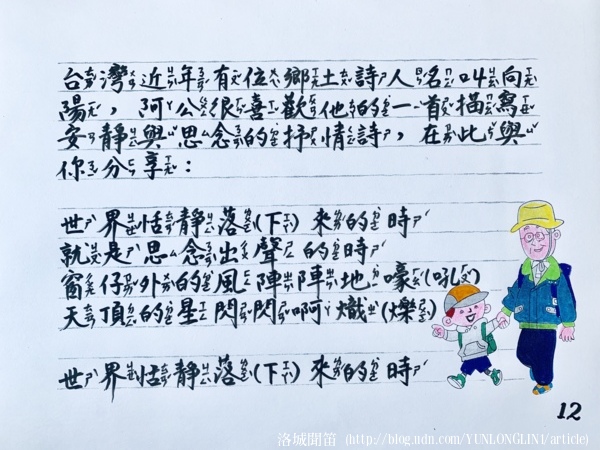 台灣近年有位鄉土詩人名叫向
陽，阿公很喜歡他的一首描寫
安靜與思念的抒情詩，在此與
你分享：
世界恬靜落(下)來的時
就是思念出聲的時
窗仔外的風陣陣地嚎(吼)
天頂的星閃閃啊熾(爍)
世界恬靜落(下)來的時
12
洛城聞笛 (http://blog.udn.com/YUNLONGLIN1/article)